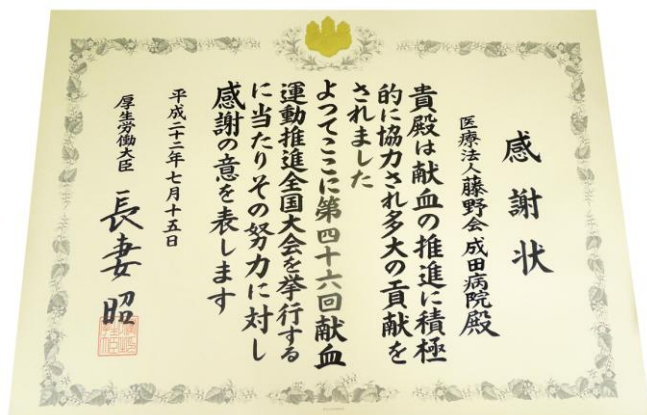 感謝状
医療法人藤野会 成田病院殿
貴殿は献血の推進に積極
的に協力され多大の貢献を
されました
よってここに第四十六回献血
運動推進全国大会を挙行する
に当たりその努力に対し
感謝の意を表します
平成二十二年七月十五日
厚生労働大臣 長妻 昭